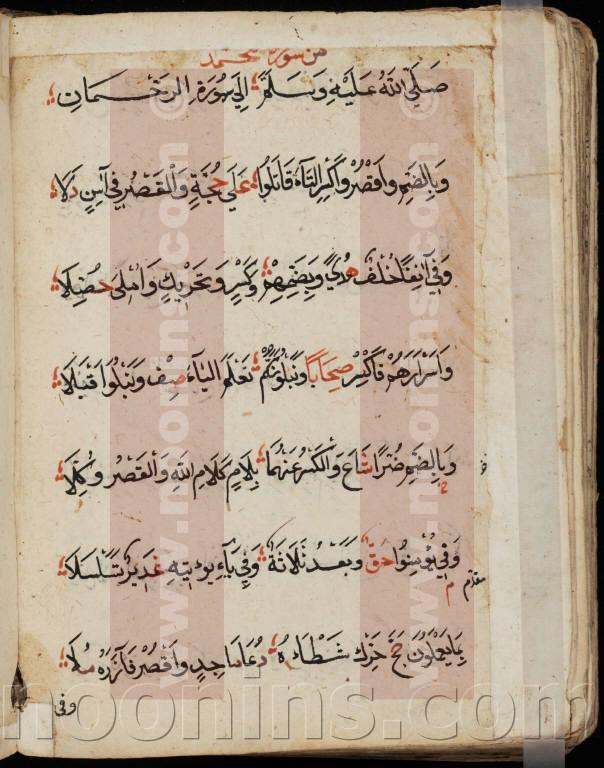 من سورة محمد
صَلَّى اللهُ عَلَيْهِ وَسَلَّمَ إِلَى سُورَةِ الرَّحْمَانِ
وَبِالضَّمِّ وَاقْصُرْ وَاكْسِرِ التَّاءَ قَاتَلُوا عَلَى حُجَّةٍ وَالْقَصْرُ فِي آسِنٍ دَلَا
وَفِي آنِفًا خُلْفٌ هُدًى وَبِضَمِّهِمْ وَكَسْرٍ وَتَحْرِيكٍ وَأُمْلِيَ حُصِّلَا
وَاسْرَارَهُمْ فَاكْسِرْ صِحَابًا وَنَبْلُوَنَّكُمْ نَعْلَمَ الْيَاءَ صِفْ وَنَبْلُوَا قْبَلَا
وَبِالضَّمِّ ضُرًّا شَاعَ وَالْكَسْرُ عَنْهُمَا بِلَامِ كَلَامِ اللهِ وَالْقَصْرُ وُكِّلَا
وَفِي يُؤْمِنُوا حَقٌّ وَبَعْدُ ثَلَاثَةٌ وَفِي يَاءِ يُؤْتِيهِ غَدِيرٌ تَسَلْسَلَا
بِمَا يَعْمَلُونَ حَجَّ حَرِّكْ شَطْأَهُ دُعَا مَاجِدٍ وَاقْصُرْ فَآزَرَهُ مُلَا
وفي
www.noonins.com ©
www.noonins.com ©
noonins.com